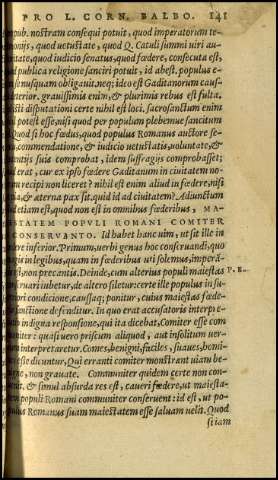 PRO L. CORN. BALBO. 141
pub. nostram consequi potuit, quod imperatorum te-
monijs, quod uetustate, quod Q. Catuli summi uiri au-
ritate, quod iudicio senatus, quod fœdere, consecuta est,
publica religione sanciri potuit, id abest. populus e-
nusquam obligauit. neq; ideo est Gaditanorum caus-
deterior. grauissimis enim, & plurimis rebus est fulta.
disputationi certe nihil est loci. sacrosanctum enim
potest esse, nisi quod per populum plebemue sancitum
Quod si hoc fœdus, quod populus Romanus auctore se-
commendatione, & iudicio uetustatis, uoluntate, &
sententijs suis comprobat, idem suffragijs comprobasset;
erat, cur ex ipso fœdere Gaditanum in ciuitatem no-
recipi non liceret? nihil est enim aliud in fœdere, nisi
& æterna pax sit. quid id ad ciuitatem? Adiunctum
etiam est, quod non est in omnibus fœderibus, MA-
IESTATEM POPVLI ROMANI COMITER
CONSERVANTO. Id habet hanc uim, ut sit ille in
fœdere inferior. Primum, uerbi genus hoc conseruandi, quo
in legibus, quam in fœderibus uti solemus, imperā-
non precantis. Deinde, cum alterius populi maiestas P. R.
conseruari iubetur, de altero siletur: certe ille populus in su-
periori conditione, caussaq; ponitur, cuius maiestas fœde-
sanctione defenditur. In quo erat accusatoris interpre-
indigna responsione, qui ita dicebat, Comiter esse com-
muniter: quasi uero priscum aliquod, aut insolitum uer-
interpretaretur. Comes, benigni, faciles, suaues, homi-
dicuntur. Qui erranti comiter monstrat uiam be-
nigne, non grauate. Communiter quidem certe non con-
uenit. & simul absurda res est, caueri fœdere, ut maiesta-
populi Romani communiter conseruent: id est, ut po-
pulus Romanus suam maiestatem esse saluam uelit. Quod
si iam